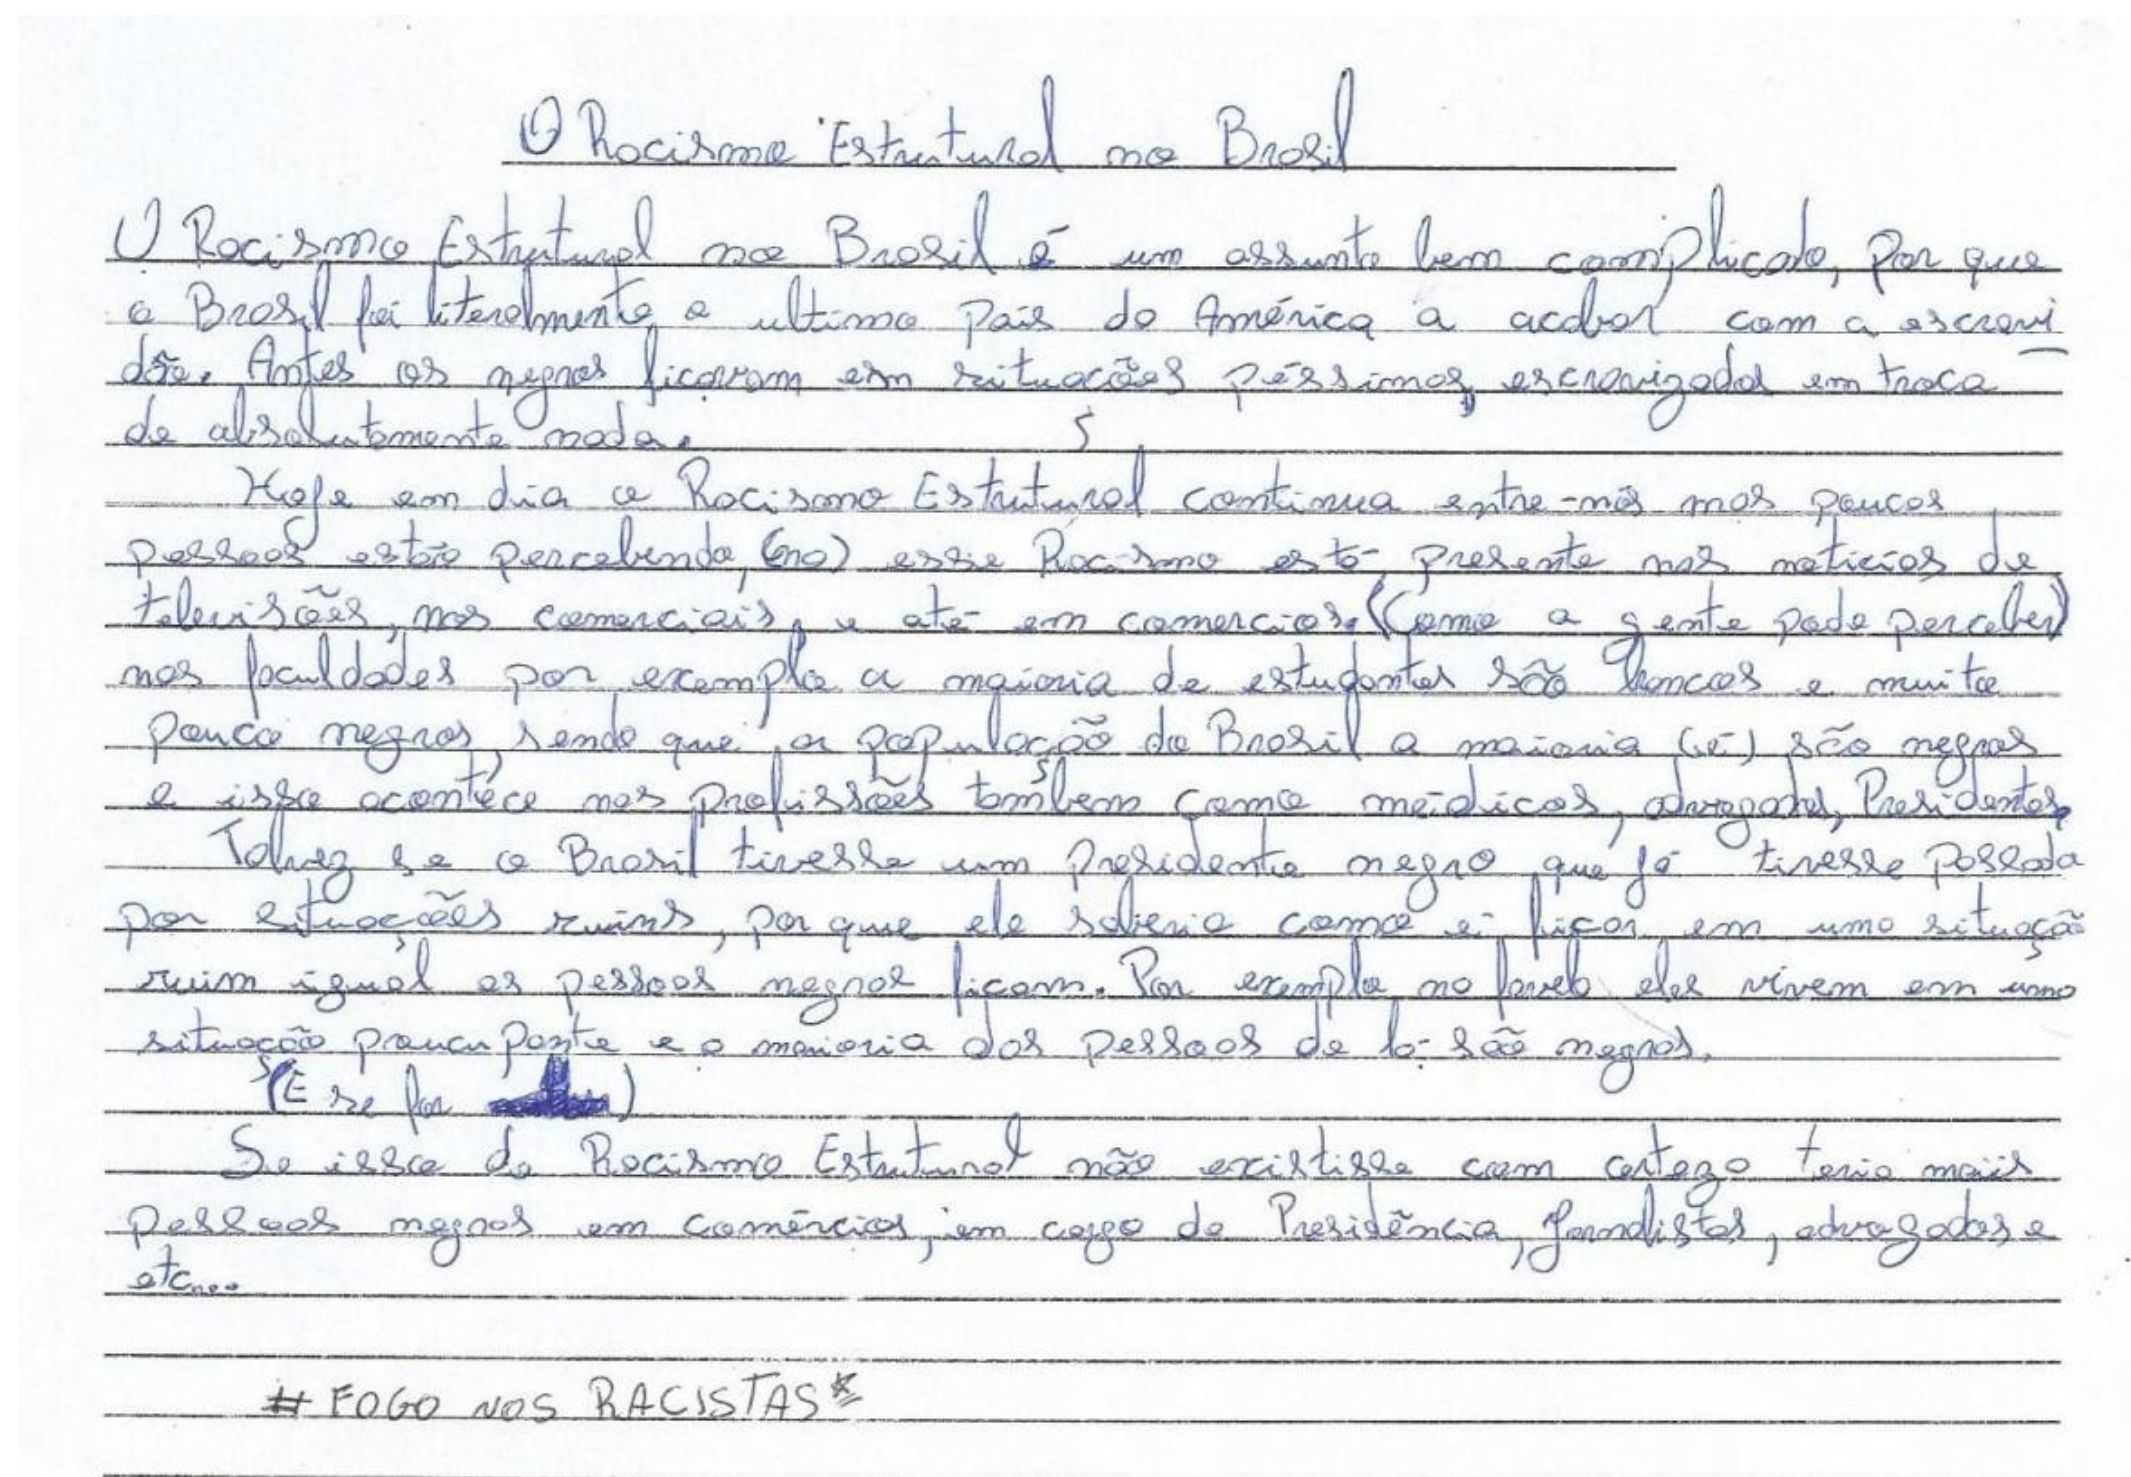 O Racismo Estrutural no Brasil
O Racismo Estrutural no Brasil é um assunto bem complicado, por que
o Brasil foi literalmente o ultimo País da América a acabar com a escravi
dão. Antes os negros ficavam em situações péssimas, escravizados em troca
de absolutamente nada.
Hoje em dia o Racismo Estrutural continua entre-nós mas poucas
pessoas estão percebendo, (no) esse Racismo está presente nas noticias de
televisões, nos comerciais, e até em comercios. (Como a gente pode perceber)
nas faculdades por exemplo a maioria de estudantes são brancos e muito
pouco negros, sendo que a população do Brasil a maioria (é) são negros
e isso acontece nas profissões tambem como médicos, advogados, Presidentes.
Talvez se o Brasil tivesse um presidente negro que já tivesse passado
por situações ruins, por que ele saberia como é ficar em uma situação
ruim igual as pessoas negras ficam. Por exemplo na favela eles vivem em uma
situação precupante e a maioria das pessoas de lá são negros.
(E se for )
Se isso de Racismo Estrutural não existisse com certeza teria mais
pessoas negras em comércios, em cargo de Presidência, Jornalistas, advogados e
etc...
# FOGO NOS RACISTAS*